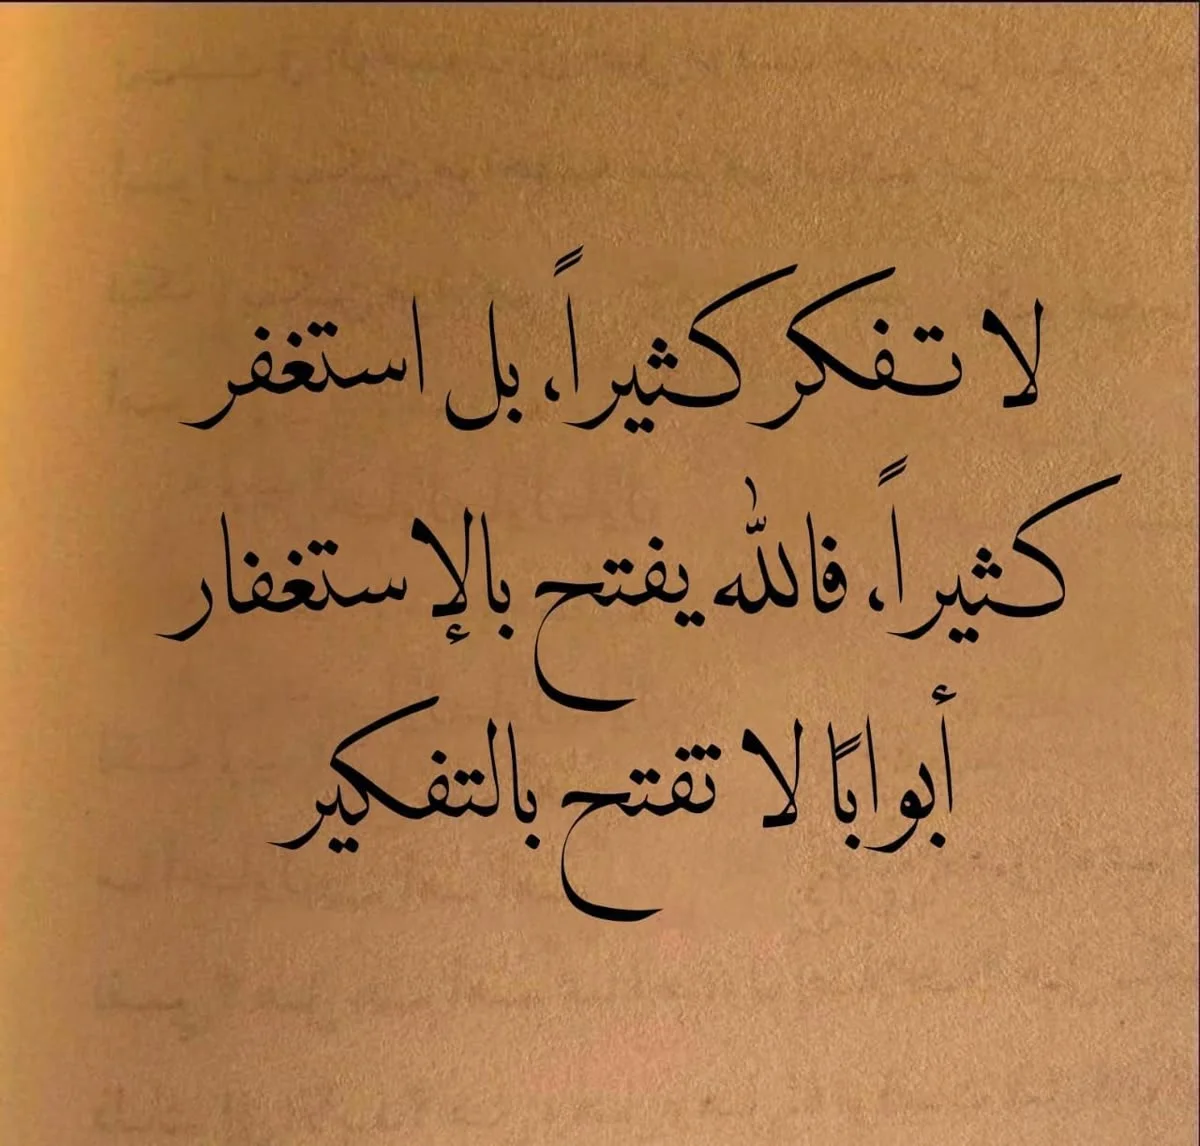 لا تفكر كثيراً، بل استغفر
كثيراً، فالله يفتح بالإستغفار
أبوابًا لا تفتح بالتفكير